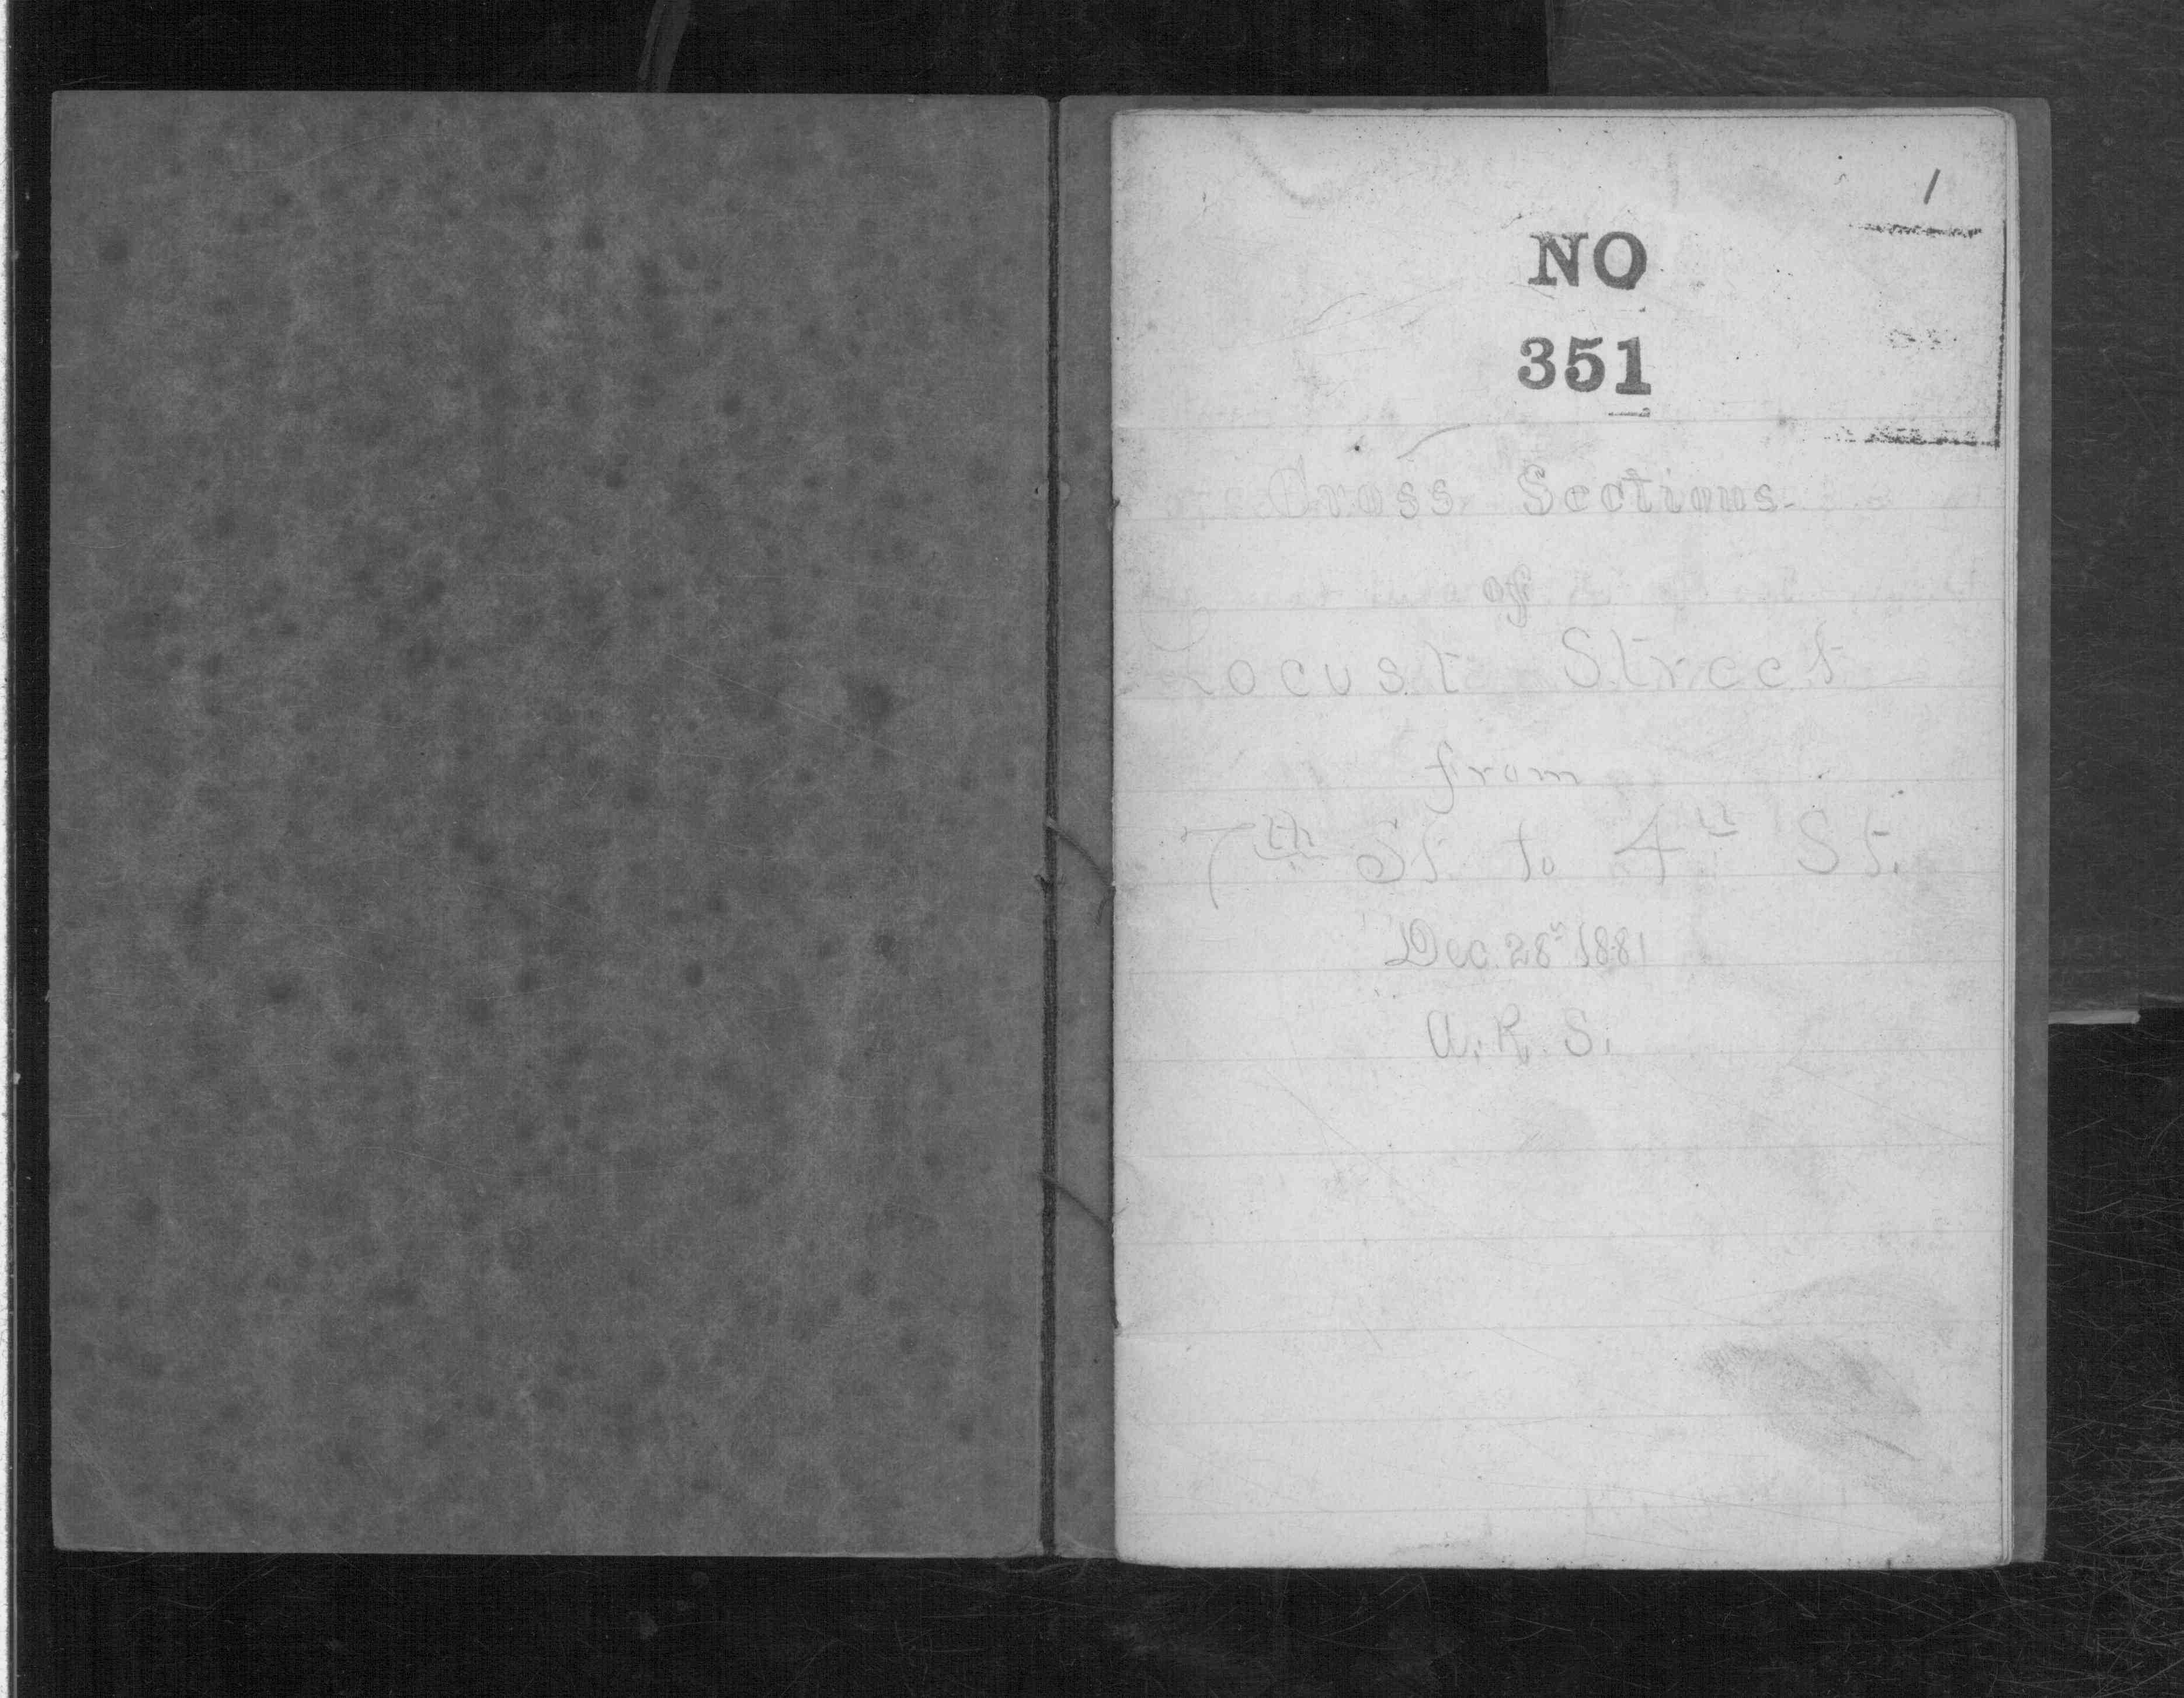 1
NO
351
Cross Sections.
of
Locust Street
from
7th St. to 4th St.
Dec. 28th 1881
A. R. S.